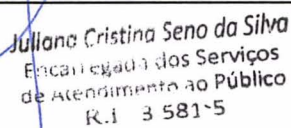 Juliana Cristina Seno da Silva
Encarregada dos Serviços
de Atendimento ao Público
R.i 3 581-5